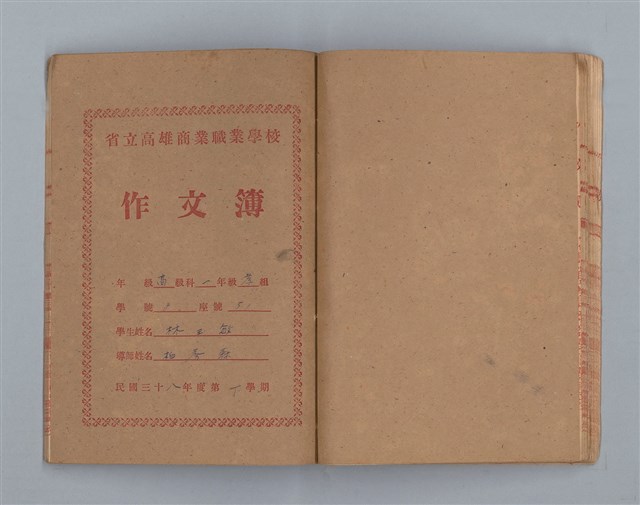 省立高雄商業職業學校
作文簿
年級 商 級科 一 年級 組
學號 座號
學生姓名 林
導師姓名 楊
民國三十八年度第 學期